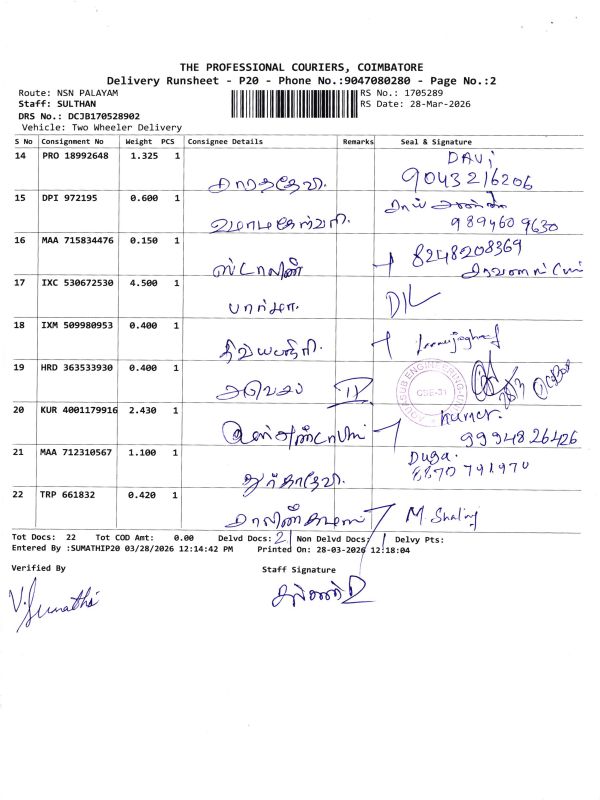 THE PROFESSIONAL COURIERS, COIMBATORE
Delivery Runsheet - P20 - Phone No.:9047080280 - Page No.:2
Route: NSN PALAYAM
RS No.: 1705289
Staff: SULTHAN
RS Date: 28-Mar-2026
DRS No.: DCJB170528902
Vehicle: Two Wheeler Delivery
S No Consignment No Weight PCS Consignee Details Remarks Seal & Signature
14 PRO 18992648 1.325 1
9043216206
15 DPI 972195 0.600 1
உமாமகேஸ்வரி.
9894609630
16 MAA 715834476 0.150 1
ஸ்டாலின்
8248208369
17 IXC 530672530 4.500 1
18 IXM 509980953 0.400 1
திவ்யபாரதி.
19 HRD 363533930 0.400 1
20 KUR 4001179916 2.430 1
Kumar.
9994826426
21 MAA 712310567 1.100 1
துர்காதேவி.
Durga.
8870791970
22 TRP 661832 0.420 1
M. Shaliny
Tot Docs: 22 Tot COD Amt: 0.00 Delvd Docs: 21 Non Delvd Docs: 1 Delvy Pts:
Entered By :SUMATHIP20 03/28/2026 12:14:42 PM Printed On: 28-03-2026 12:18:04
Verified By
Staff Signature
V. Sumathi